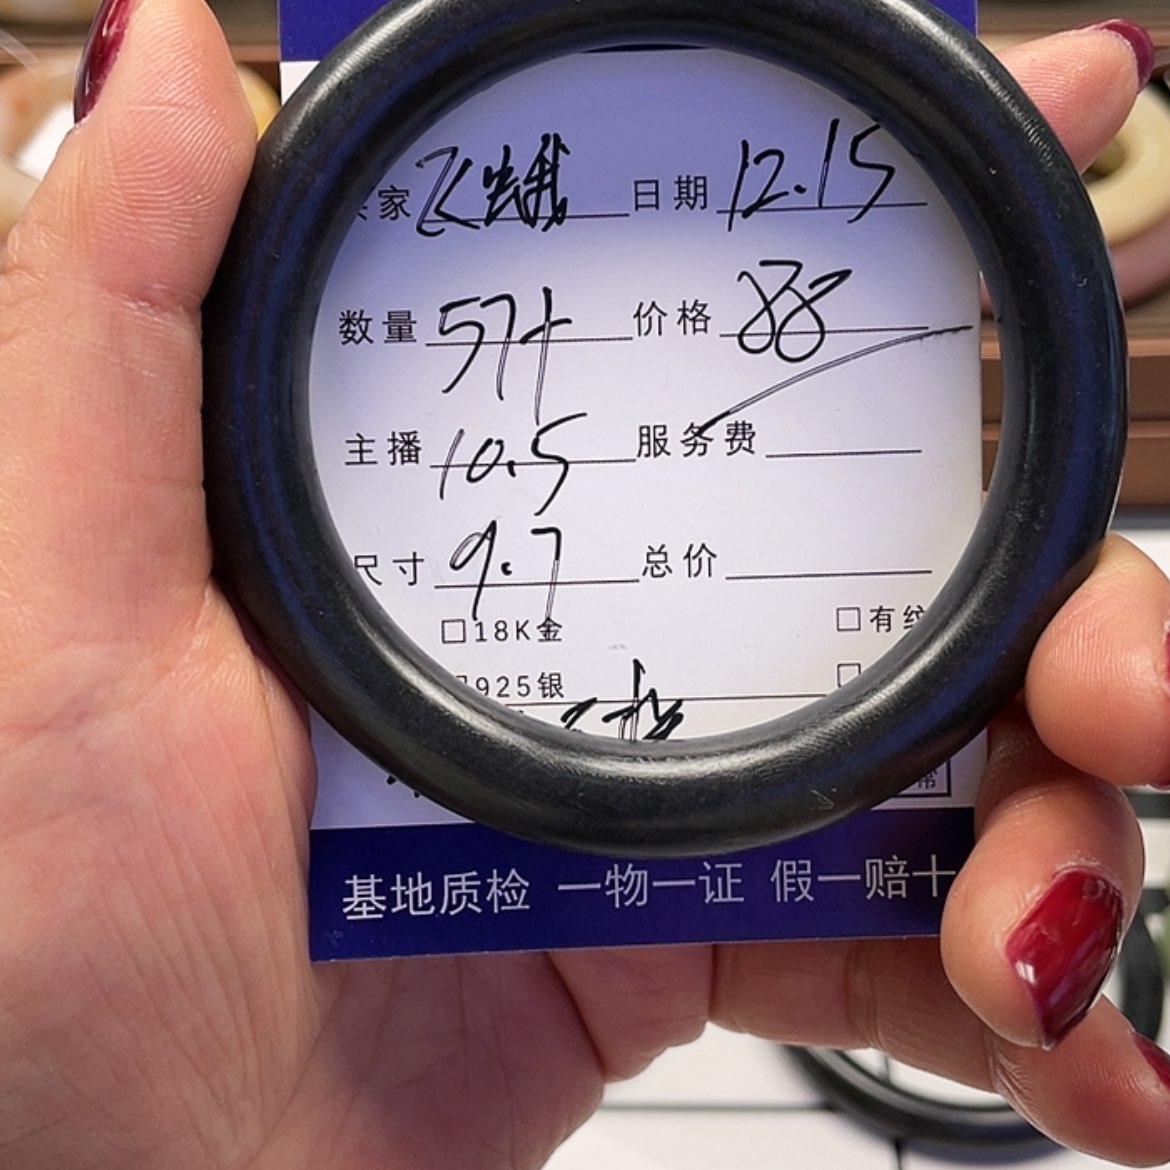 家 飞蛾 日期 12.15
数量 57+ 价格 88
主播 10.5 服务费
尺寸 9.7 总价
□18K金 □有纹
925银 □
基地质检 一物一证 假一赔十